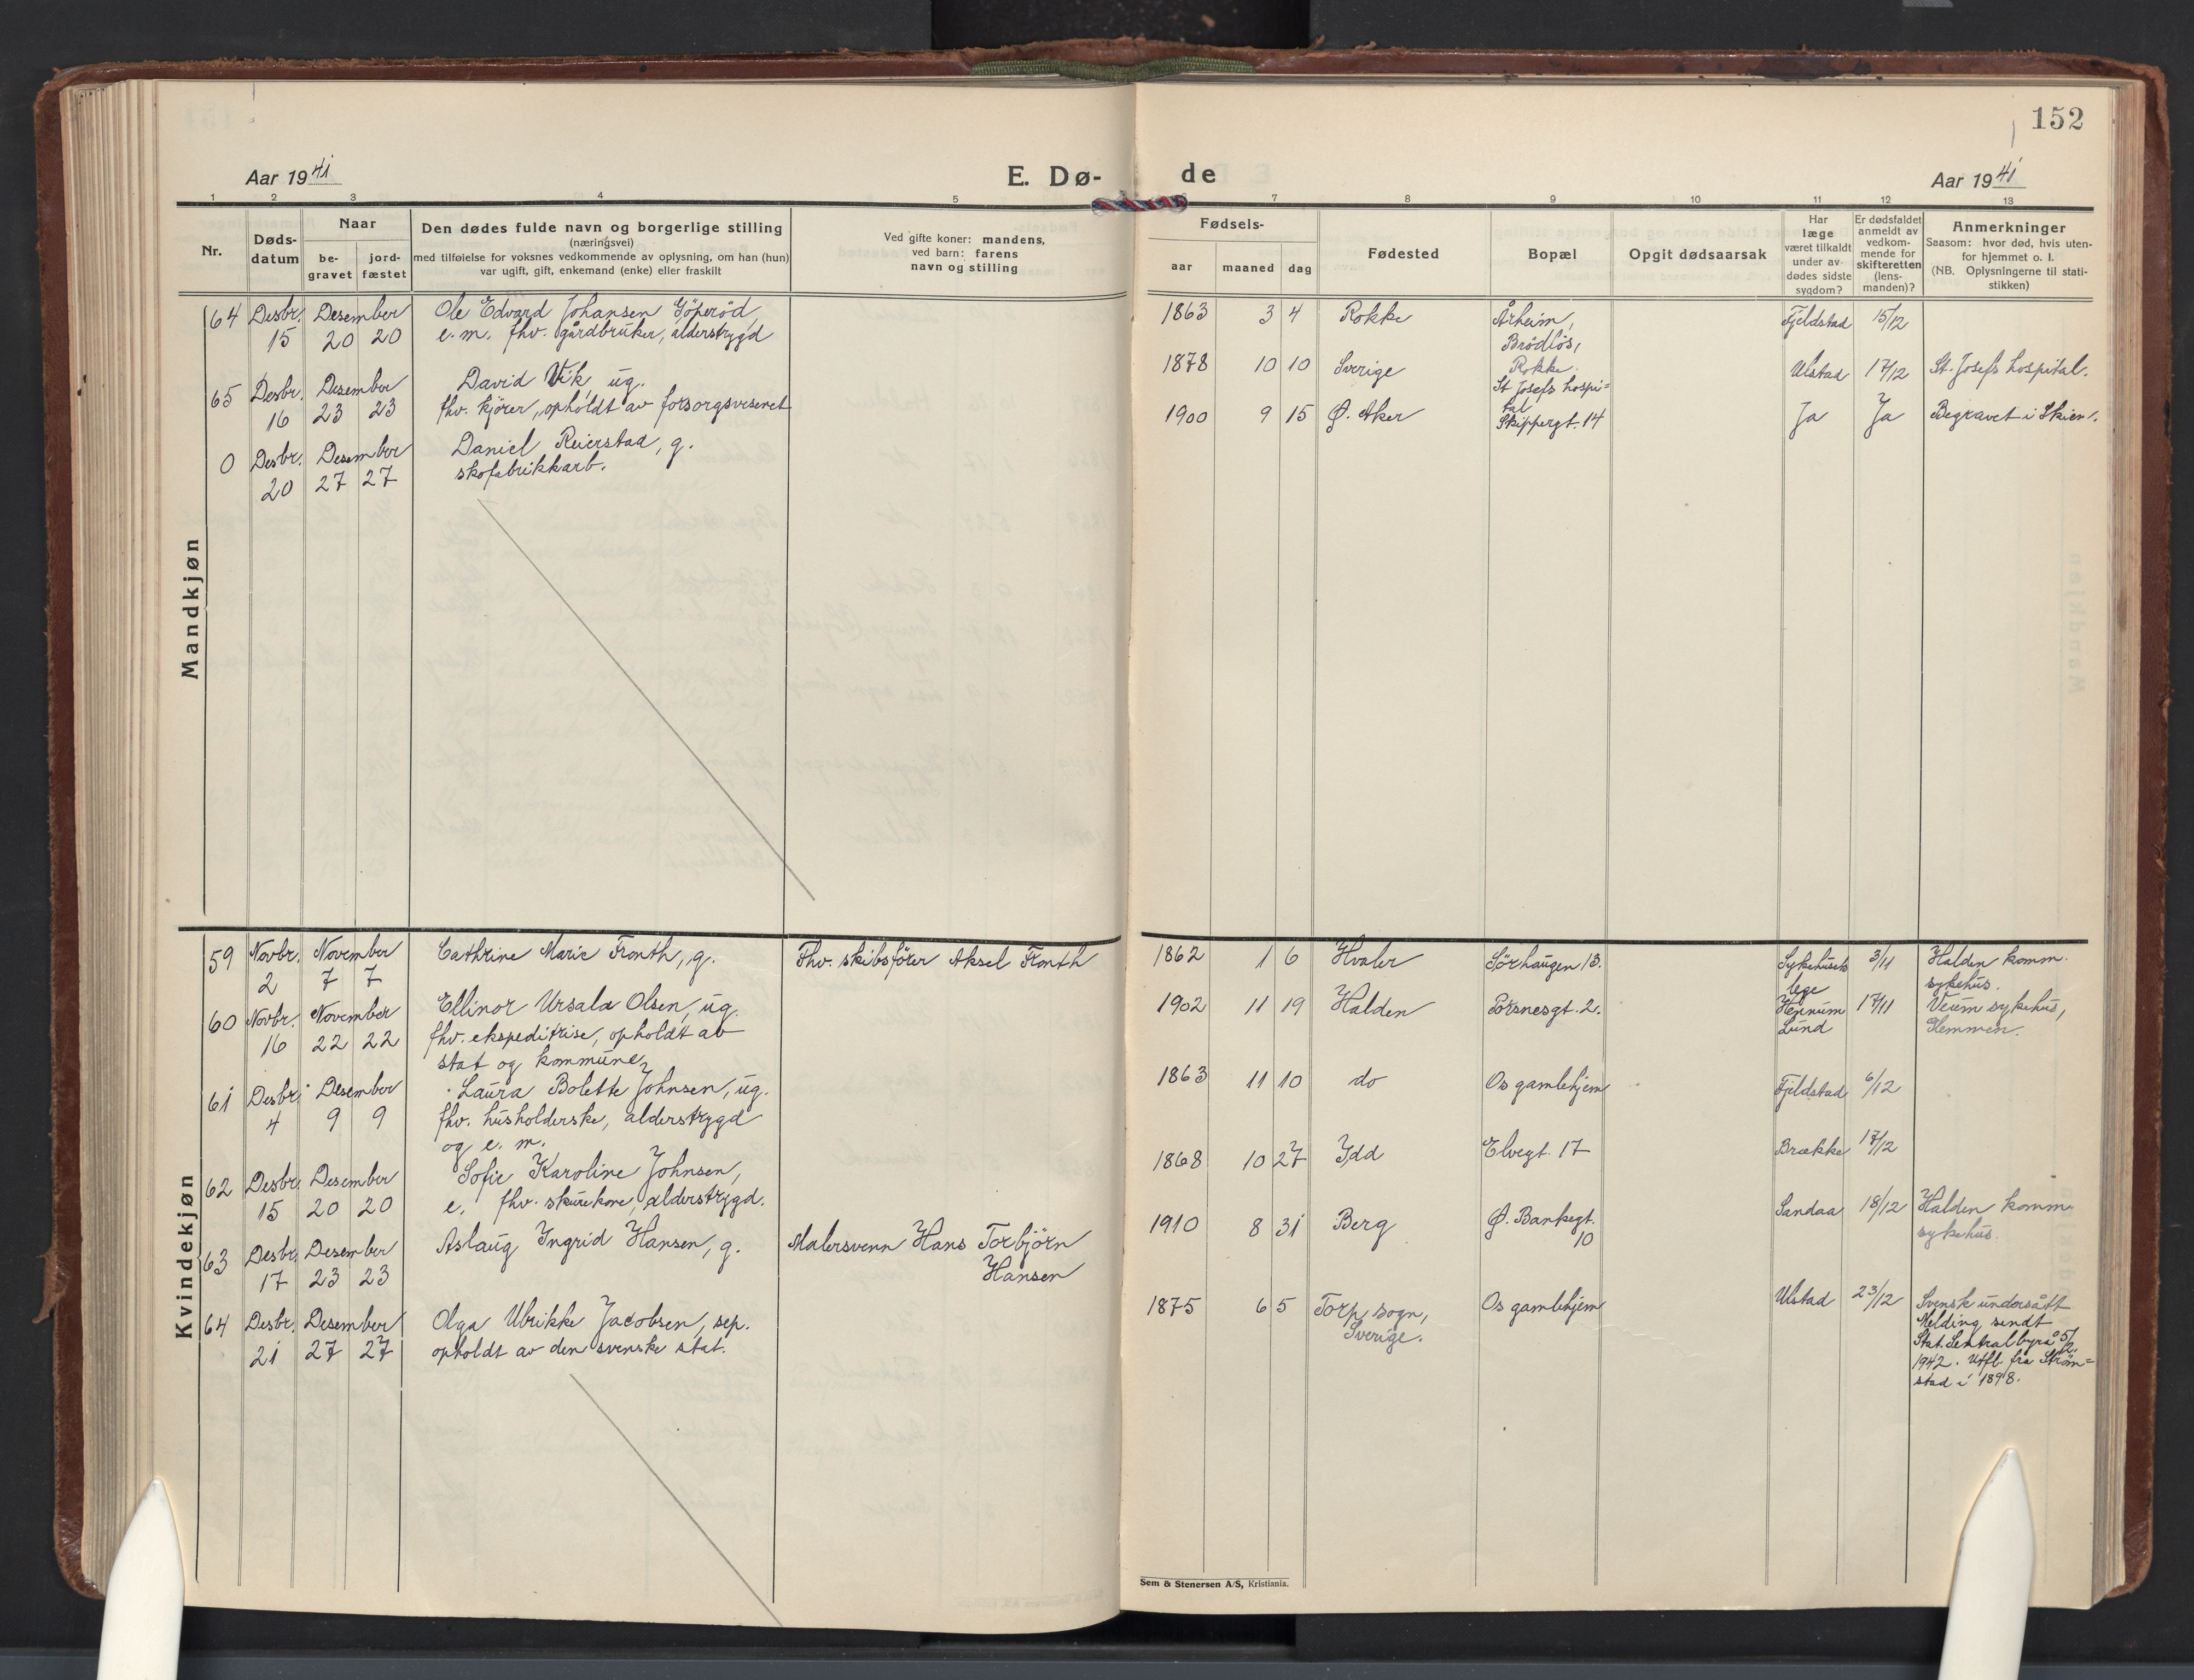 152
Aar 1941
E. Dø-
de
Aar 1941
1 2 3 4 5 6 7 8 9 10 11 12 13
Nr.
Døds-
datum
Naar
be-
gravet
jord-
fæstet
Den dødes fulde navn og borgerlige stilling
(næringsvei)
med tilføielse for voksnes vedkommende av oplysning, om han (hun)
var ugift, gift, enkemand (enke) eller fraskilt
Ved gifte koner: mandens,
ved barn: farens
navn og stilling
Fødsels-
aar maaned dag
Fødested
Bopæl
Opgit dødsaarsak
Har
læge
været tilkaldt
under av-
dødes sidste
sygdom?
Er dødsfaldet
anmeldt av
vedkom-
mende for
skifteretten
(lens-
manden)?
Anmerkninger
Saasom: hvor død, hvis uten-
for hjemmet o. l.
(NB. Oplysningerne til stati-
stikken)
Mandkjøn
64 Desbr. Desember Ole Edvard Johansen Göperöd,
15 20 20 e. m. fhv. gårdbruker, alderstrygd
1863 3 4 Rokke Årheim, Fjeldstad 15/12
Brödlös,
Rokke.
65 Desbr. Desember David Vik, ug.
16 23 23 fhv. kjörer, opholdt av forsorgsvesenet
1878 10 10 Sverige Ulstad 17/12 St. Josefs hospital.
St Josefs hospi=
tal
0 Desbr. Desember Daniel Reierstad, g.
20 27 27 skofabrikkarb.
1900 9 15 Ø. Aker Skippergt. 14 Ja Ja Begravet i Skien.
Kvindekjøn
59 Novbr. November Cathrine Marie Fronth, g. Fhv. skibsförer Aksel Fronth
2 7 7
1862 1 6 Hvaler Sörhaugen 13. Sykehusets 3/11 Halden komm.
lege sykehus.
60 Novbr. November Ellinor Ursala Olsen, ug.
16 22 22 fhv. ekspeditrise, opholdt av
stat og kommune
1902 11 19 Halden Porsnesgt. 2. Hennum 17/11 Veum sykehus,
Lund Glemmen.
61 Desbr. Desember Laura Bolette Johnsen, ug.
4 9 9 fhv. husholderske, alderstrygd
og e. m.
1863 11 10 do Os gamlehjem Fjeldstad 6/12
62 Desbr. Desember Sofie Karoline Johnsen,
15 20 20 e. fhv. skurekone, alderstrygd.
1868 10 27 Idd Elvegt. 17 Brække 17/12
63 Desbr. Desember Aslaug Ingrid Hansen, g. Malersvenn Hans Torbjörn
17 23 23 Hansen
1910 8 31 Berg Ø. Bankegt. Sandaa 18/12 Halden komm.
10 sykehus.
64 Desbr. Desember Olga Ulrikke Jacobsen, sep.
21 27 27 opholdt av den svenske stat.
1875 6 5 Torp sogn, Os gamlehjem Ulstad 23/12 Svensk undersått
Sverige. Melding sendt
Stat. Sentralbyrå 5/2.
1942. Utfl. fra Ström=
stad i 1898.
Sem & Stenersen A/S, Kristiania.